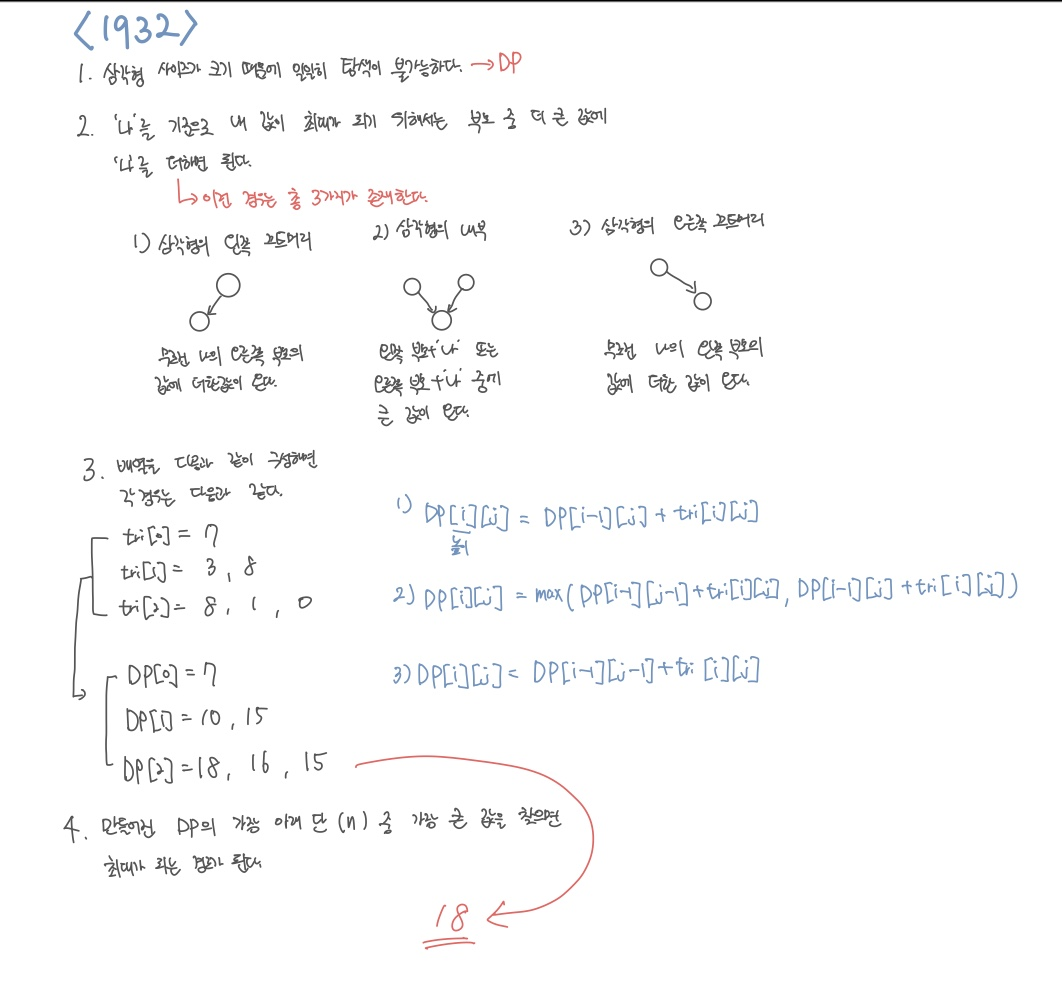 <1932>
1. 삼각형 사이즈가 크기 때문에 일일히 탐색이 불가능하다. → DP
2. '나'를 기준으로 내 값이 최대가 되기 위해서는 부모 중 더 큰 값에
'나'를 더하면 된다.
↳ 이런 경우는 총 3가지가 존재한다.
1) 삼각형의 왼쪽 모트머리
2) 삼각형의 내부
3) 삼각형의 오른쪽 모트머리
무조건 나의 오른쪽 부모의
값에 더한값이 온다.
왼쪽 부모+'나' 또는
오른쪽 부모+'나' 중에
큰 값이 온다.
무조건 나의 왼쪽 부모의
값에 더한 값이 온다.
3. 배열을 다음과 같이 구성하면
각 경우는 다음과 같다.
tri[0] = 7
tri[1] = 3, 8
tri[2] = 8, 1, 0
DP[0] = 7
DP[1] = 10, 15
DP[2] = 18, 16, 15
1) DP[i][j] = DP[i-1][j] + tri[i][j]
높이
2) DP[i][j] = max(DP[i-1][j-1] + tri[i][j], DP[i-1][j] + tri[i][j])
3) DP[i][j] = DP[i-1][j-1] + tri[i][j]
4. 만들어진 DP의 가장 아래 단 (n) 중 가장 큰 값을 찾으면
최대가 되는 경로가 된다.
18